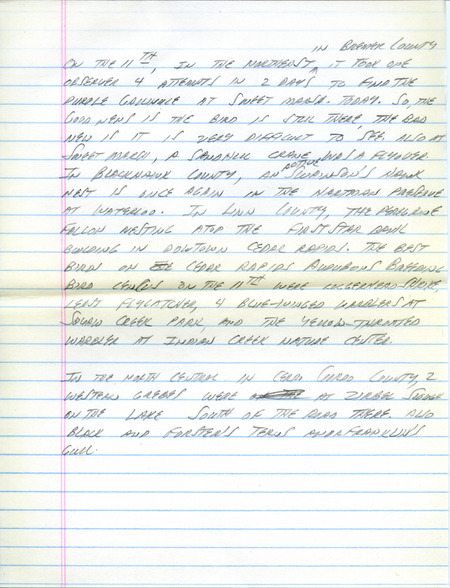 IN BREMER COUNTY
ON THE 11TH, IN THE NORTHEAST, ^ IT TOOK ONE
OBSERVER 4 ATTEMPTS IN 2 DAYS TO FIND THE
PURPLE GALLINULE AT SWEET MARSH. TODAY. SO, THE
GOOD NEWS IS THE BIRD IS STILL THERE, THE BAD
NEWS IS IT IS VERY DIFFICULT TO SEE. ALSO AT
SWEET MARSH, A SANDHILL CRANE WAS A FLYOVER.
IN BLACKHAWK COUNTY, AN ACTIVE SWAINSON'S HAWK
NEST IS ONCE AGAIN IN THE HARTMAN PRESERVE
AT WATERLOO. IN LINN COUNTY, THE PEREGRINE
FALCON NESTING ATOP THE FIRST STAR BANK
BUILDING IN DOWNTOWN CEDAR RAPIDS. THE BEST
BIRDS ON CEDAR RAPIDS AUDUBONS BREEDING
BIRD CENSUS ON THE 11TH WERE LOGGERHEAD SHRIKE,
LEAST FLYCATCHER, 4 BLUE-WINGED WARBLERS AT
SQUAW CREEK PARK, AND THE YELLOW-THROATED
WARBLER AT INDIAN CREEK NATURE CENTER.
IN THE NORTH CENTRAL IN CERRO GORDO COUNTY, 2
WESTERN GREBES WERE AT ZIRBEL SLOUGH
ON THE LAKE SOUTH OF THE ROAD THERE. ALSO
BLACK AND FORSTER'S TERNS AND A FRANKLIN'S
GULL.